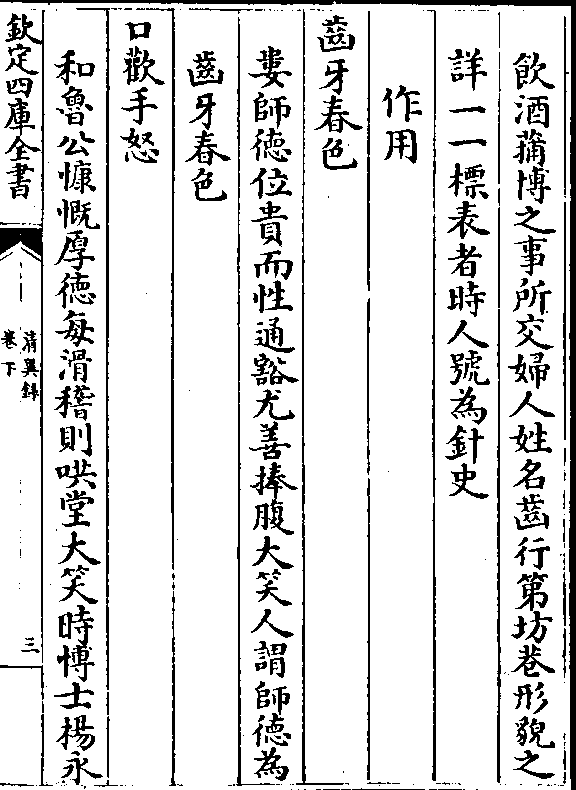 飲酒蒱博之事所交婦人姓名齒行第坊巷形貌之
詳一一標表者時人號為針史
作用
齒牙春色
婁師徳位貴而性通豁尤善捧腹大笑人謂師徳為
齒牙春色
口歡手怒
和魯公慷慨厚徳每滑稽則哄堂大笑時博士楊永
欽定四庫全書
清異錄
卷下
三